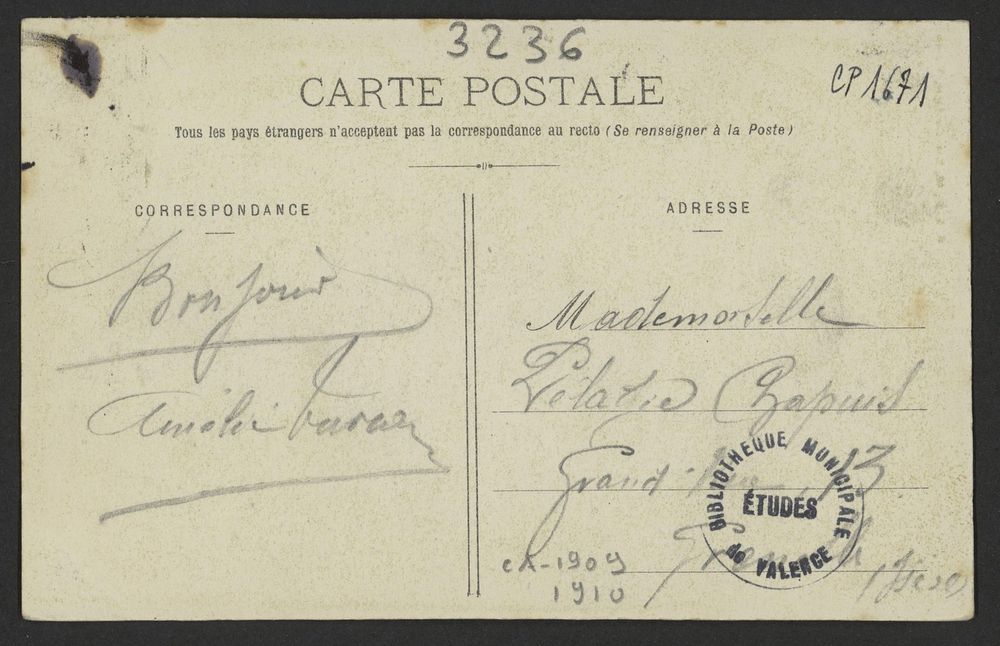 3236
CP 1671
CARTE POSTALE
Tous les pays étrangers n'acceptent pas la correspondance au recto (Se renseigner à la Poste)
CORRESPONDANCE
Bonjour
Amélie
ADRESSE
Mademoiselle
Chapuis
Grand'Rue 13
Grenoble
(Isère)
BIBLIOTHEQUE MUNICIPALE
ÉTUDES
de VALENCE
CA-1909
1910